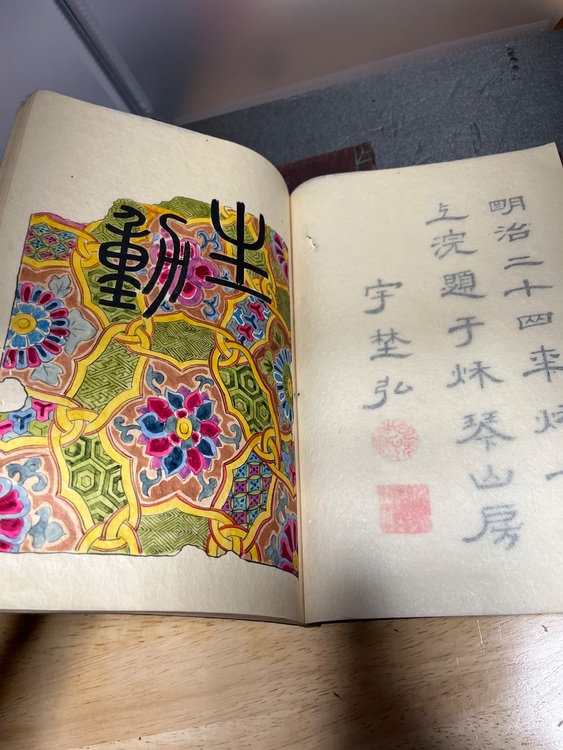 明治二十四年
上浣題于秌琴山房
宇埜弘
生動